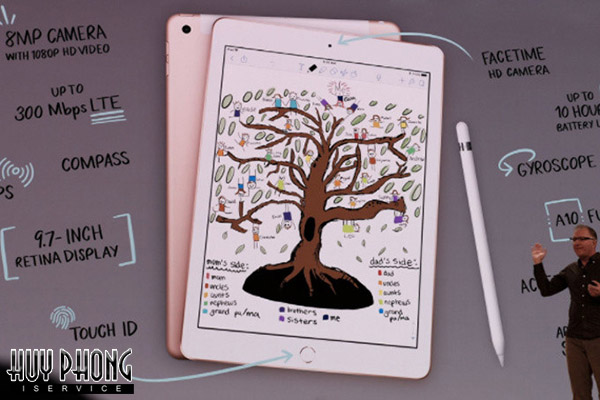 8MP CAMERA
WITH 1080P HD VIDEO
UP TO
300 Mbps LTE
COMPASS
PS
9.7-INCH
RETINA DISPLAY
TOUCH ID
FACETIME
HD CAMERA
UP TO
10 HOUR
BATTERY L
GYROSCOPE
A10 FU
AC
mom's side:
mom
uncles
aunts
nephews
grand pa/ma
brothers
sisters
me
dad's side:
dad
uncles
aunts
nephews
grand
pa/ma
HUY PHONG
ISERVICE